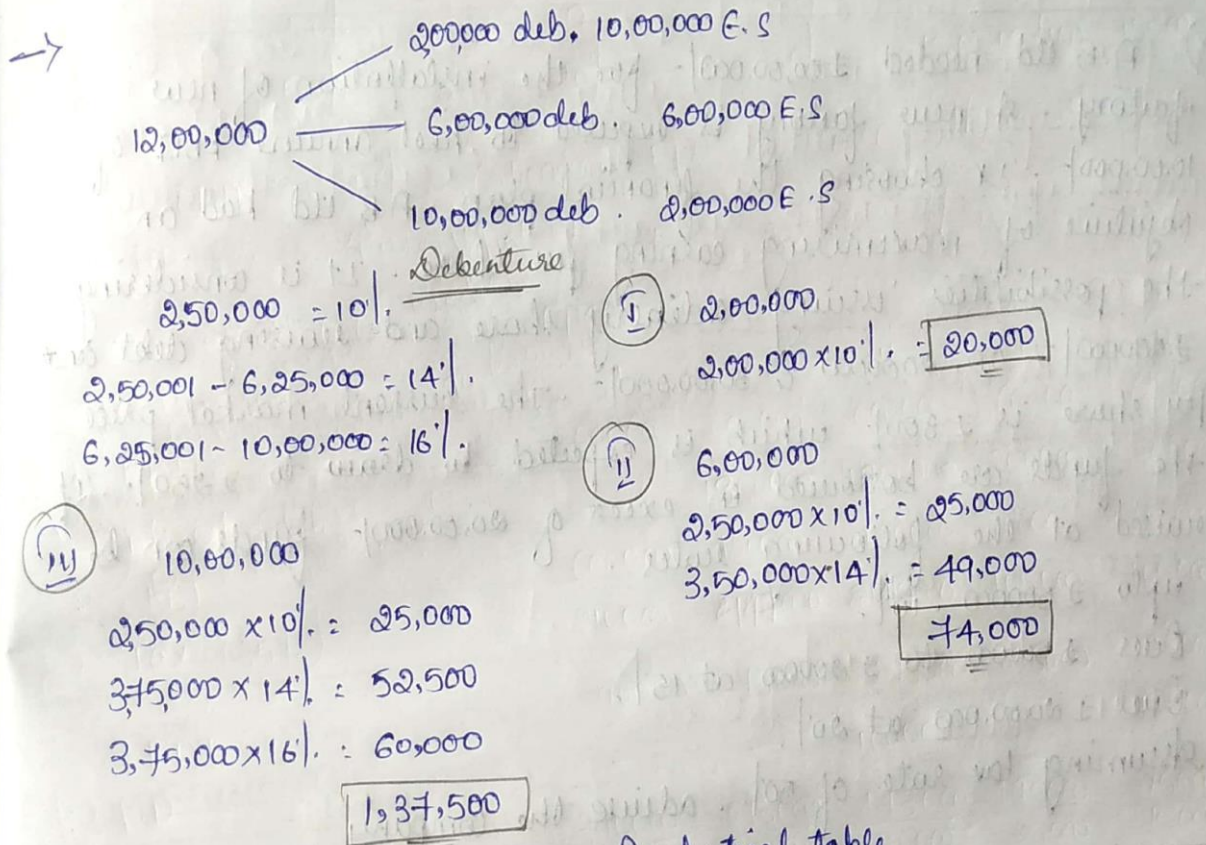 →
2,00,000 deb. 10,00,000 E.S
12,00,000
6,00,000 deb. 6,00,000 E.S
10,00,000 deb. 2,00,000 E.S
Debenture
2,50,000 = 10%.
2,50,001 - 6,25,000 = 14%.
6,25,001 - 10,00,000 = 16%.
I
2,00,000
2,00,000 x 10%. = 20,000
II
6,00,000
2,50,000 x 10%. = 25,000
3,50,000 x 14%. = 49,000
74,000
III
10,00,000
2,50,000 x 10%. = 25,000
3,75,000 x 14%. = 52,500
3,75,000 x 16%. = 60,000
1,37,500
table